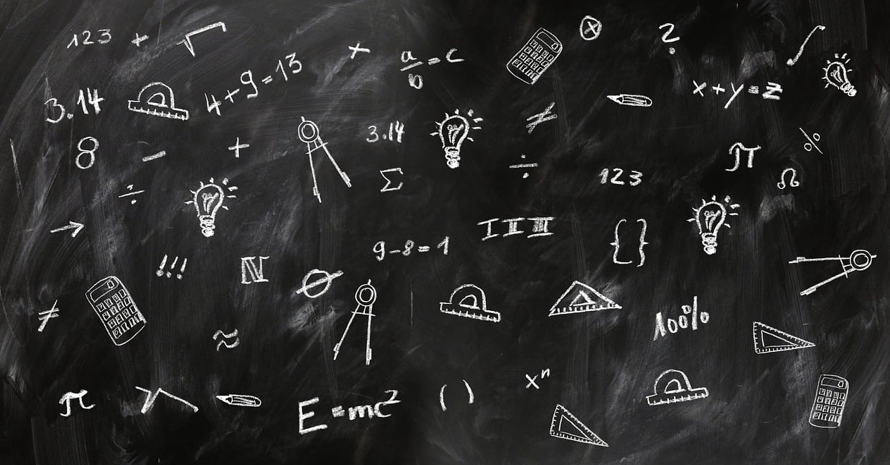 123 + √
4+9=13
+
a/b = c
?
x+y=z
3.14
3.14
8 − +
≠
÷
%
π
Ω
÷
Σ
123
→
I II III
{ }
9-8=1
!!!
N
∅
≠
≈
100%
π
√
E=mc²
( )
xⁿ